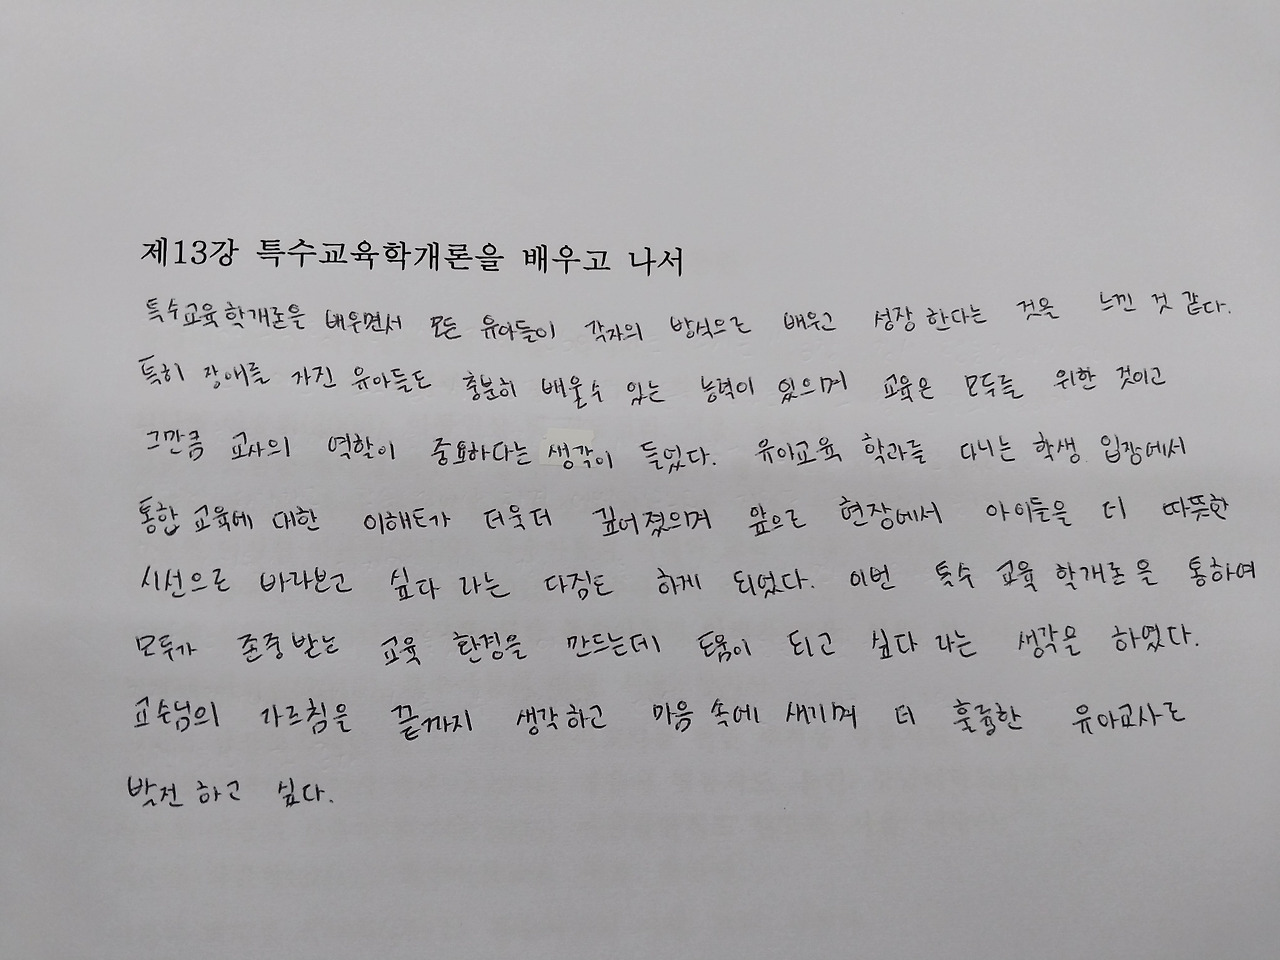 제13강 특수교육학개론을 배우고 나서
특수교육학개론을 배우면서 모든 유아들이 각자의 방식으로 배우고 성장 한다는 것을 느낀 것 같다.
특히 장애를 가진 유아들도 충분히 배울수 있는 능력이 있으며 교육은 모두를 위한 것이고
그만큼 교사의 역할이 중요하다는 생각이 들었다. 유아교육 학과를 다니는 학생 입장에서
통합 교육에 대한 이해도가 더욱더 깊어졌으며 앞으로 현장에서 아이들을 더 따뜻한
시선으로 바라보고 싶다 라는 다짐도 하게 되었다. 이번 특수 교육 학개론을 통하여
모두가 존중 받는 교육 환경을 만드는데 도움이 되고 싶다 라는 생각을 하였다.
교수님의 가르침을 끝까지 생각하고 마음 속에 새기며 더 훌륭한 유아교사로
발전 하고 싶다.